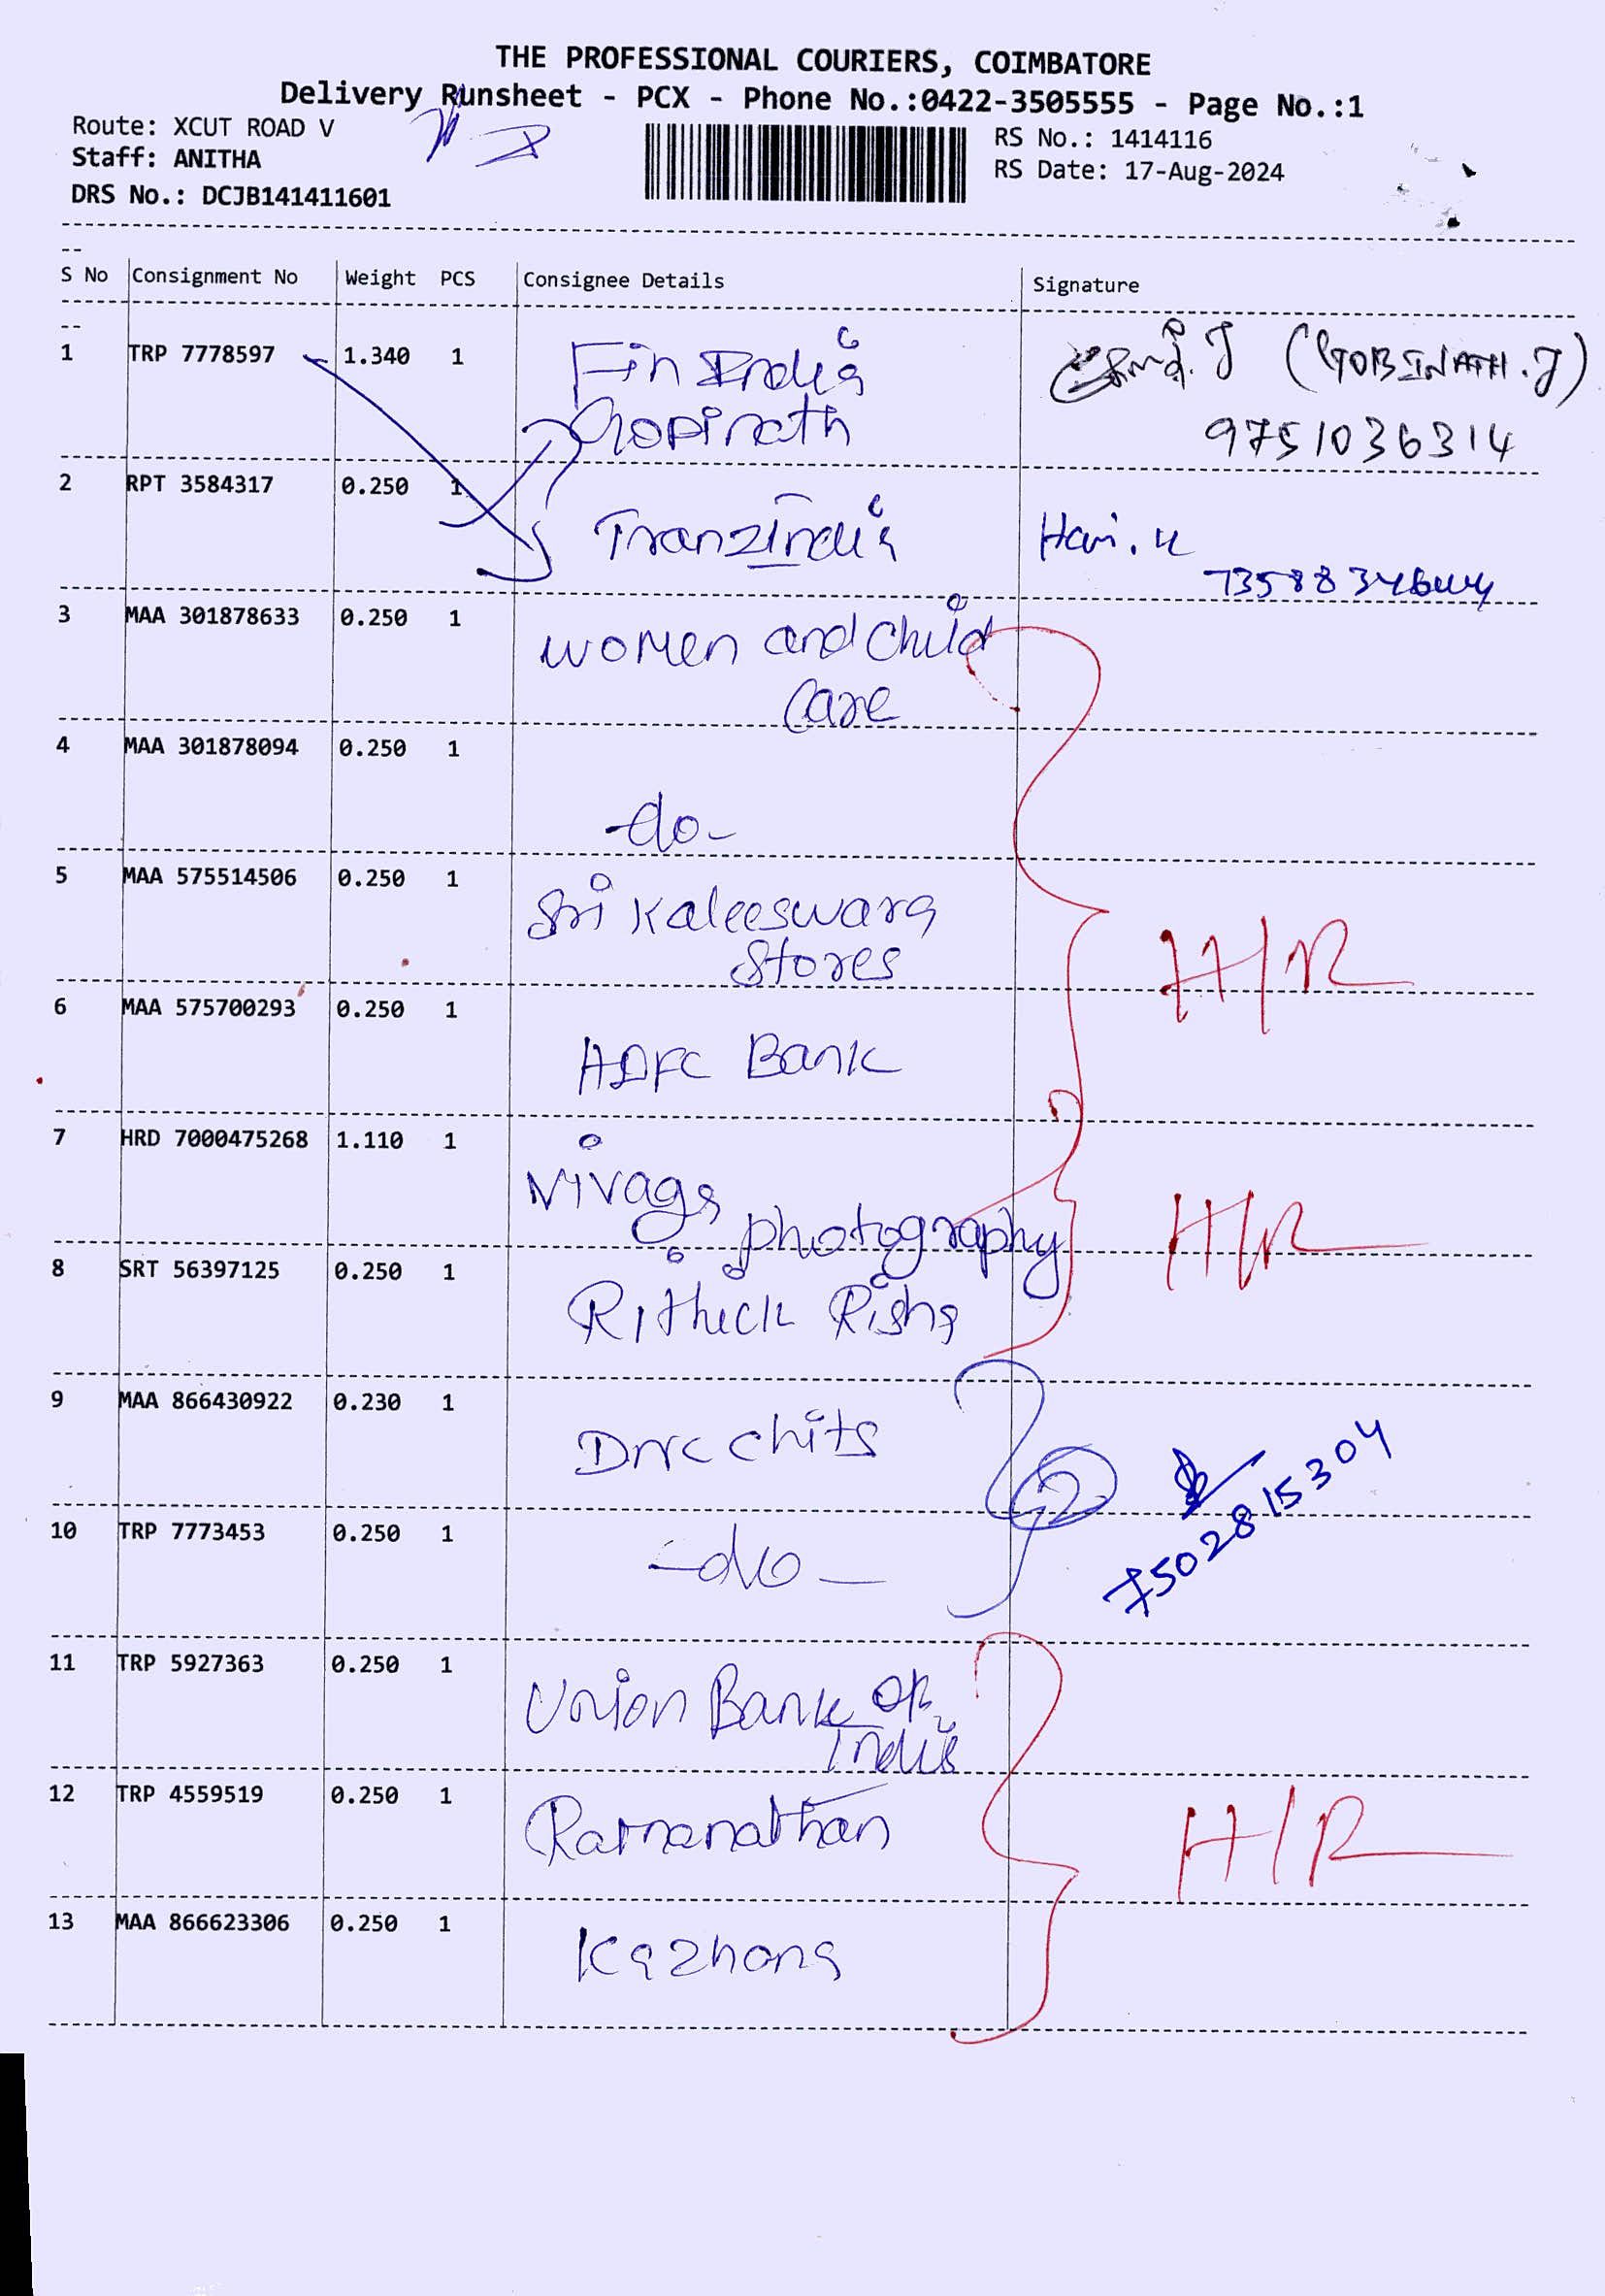 THE PROFESSIONAL COURIERS, COIMBATORE
Delivery Runsheet - PCX - Phone No.:0422-3505555 - Page No.:1
Route: XCUT ROAD V
Staff: ANITHA
DRS No.: DCJB141411601
RS No.: 1414116
RS Date: 17-Aug-2024
S No Consignment No Weight PCS Consignee Details Signature
1 TRP 7778597 1.340 1 Fin India (GOBINATH.J)
Gopinath 9751036314
2 RPT 3584317 0.250 1
TranzIndia Hari.
3 MAA 301878633 0.250 1 women and child
Care
4 MAA 301878094 0.250 1
-do-
5 MAA 575514506 0.250 1 Sri Kaleeswara
Stores
H/R
6 MAA 575700293 0.250 1
HDFC Bank
7 HRD 7000475268 1.110 1 Vivaga
photography H/R
8 SRT 56397125 0.250 1 Rithick Risha
9 MAA 866430922 0.230 1 DNC chits
2 7502815304
10 TRP 7773453 0.250 1 -do-
11 TRP 5927363 0.250 1 Union Bank of
India
12 TRP 4559519 0.250 1 Ramanathan H/R
13 MAA 866623306 0.250 1 Kazhana